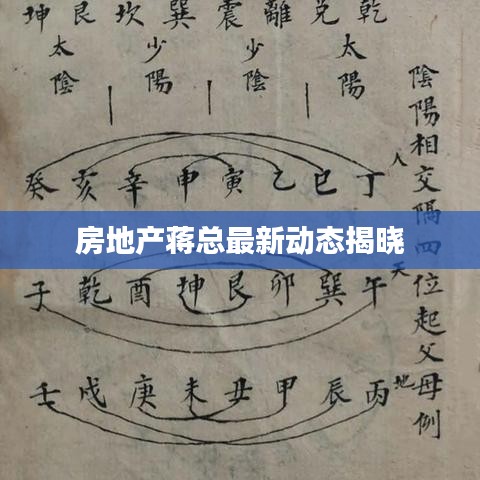 陰陽相交隔四位起父母例
乾兌離震巽坎艮坤
太陽
少陰
少陽
太陰
人
丁巳乙寅申辛亥癸
房地产蒋总最新动态揭晓
天
午巽卯艮坤酉乾子
地
丙辰甲丑未庚戌壬